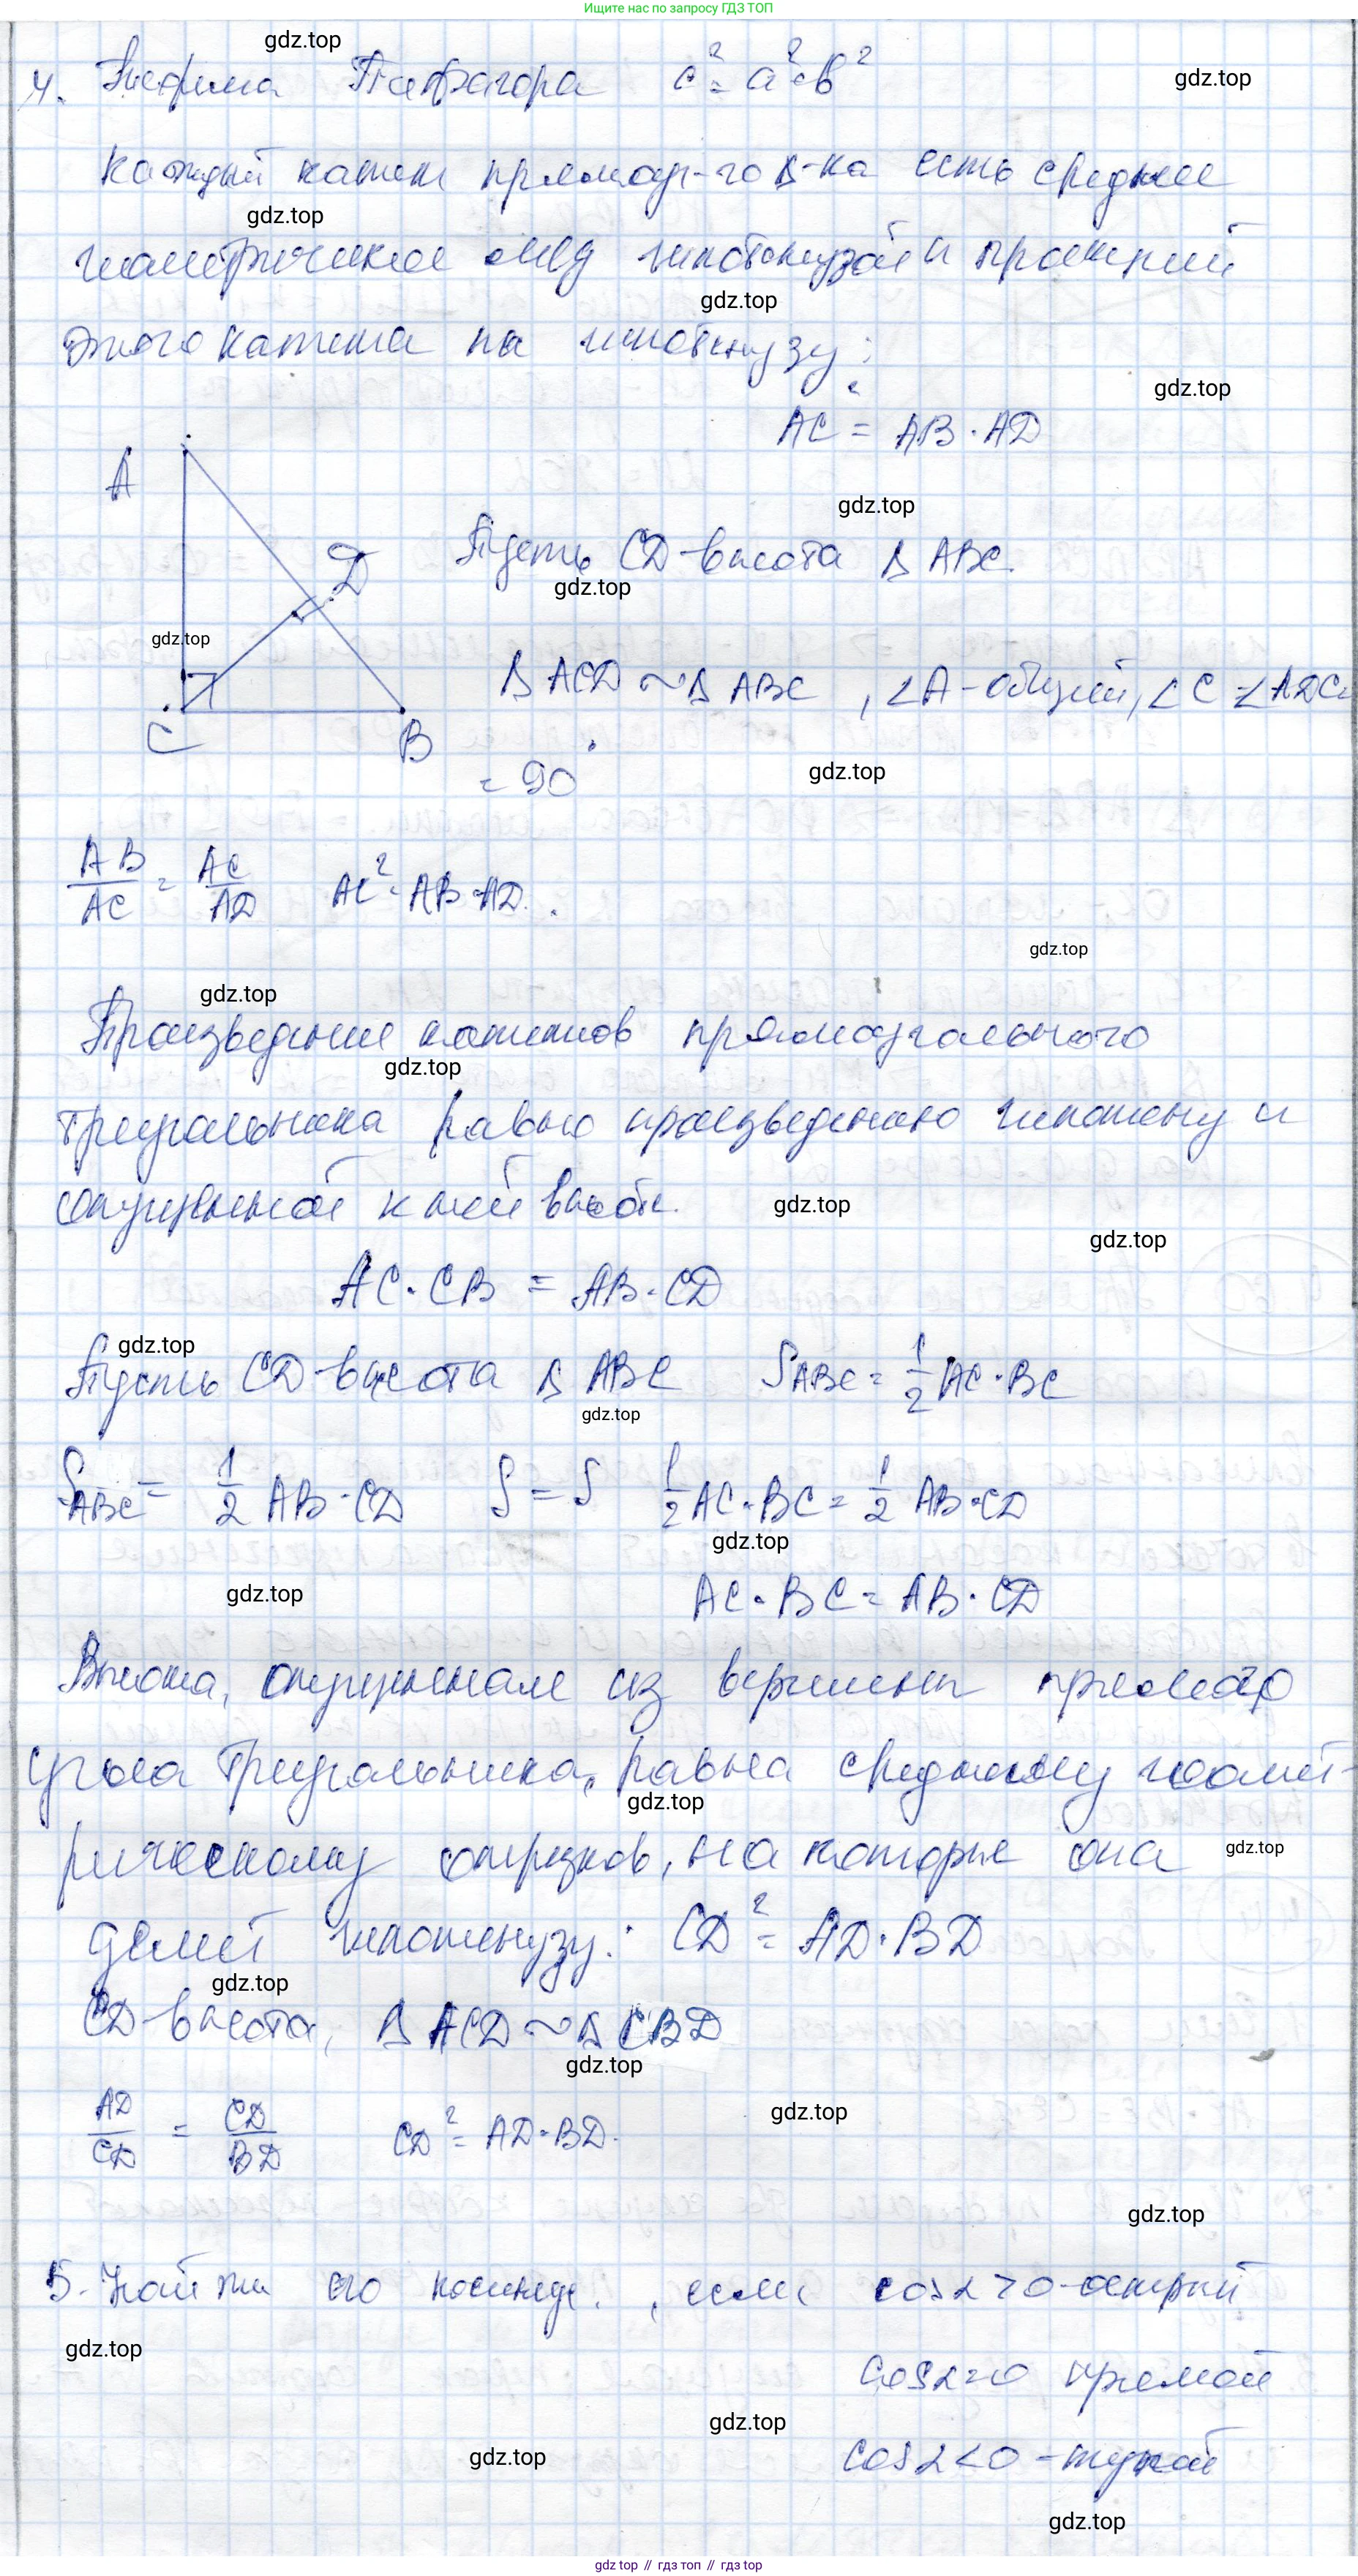 Ищите нас по запросу ГДЗ ТОП
gdz.top
4. Теорема Пифагора c² = a² + b²
gdz.top
Каждый катет прямоуг-го Δ-ка есть среднее
gdz.top
геометрическое между гипотенузой и проекцией
gdz.top
этого катета на гипотенузу:
gdz.top
AC² = AB · AD
A
gdz.top
D
Пусть CD-высота Δ ABC.
gdz.top
gdz.top
Δ ACD ~ Δ ABC, ∠A-общий, ∠C = ∠ADC =
C
B
= 90°
gdz.top
AB/AC = AC/AD AC² = AB · AD.
gdz.top
gdz.top
Произведение катетов прямоугольного
gdz.top
треугольника равно произведению гипотену и
опущенной к ней высоте.
gdz.top
gdz.top
AC · CB = AB · CD
gdz.top
Пусть CD-высота Δ ABC S ABC = 1/2 AC · BC
gdz.top
S ABC = 1/2 AB · CD S = S 1/2 AC · BC = 1/2 AB · CD
gdz.top
gdz.top
AC · BC = AB · CD
Высота, опущенная из вершины прямого
угла треугольника, равна среднему геомет-
gdz.top
рическому отрезков, на которые она
gdz.top
делит гипотенузу: CD² = AD · BD
gdz.top
CD-высота, Δ ACD ~ Δ CBD
gdz.top
AD/CD = CD/BD CD² = AD · BD.
gdz.top
gdz.top
5. Найти его косинус, если cos α > 0 - острый
gdz.top
cos α = 0 прямой
gdz.top
gdz.top
cos α < 0 - тупой
gdz.top
gdz top // гдз топ // гдз top